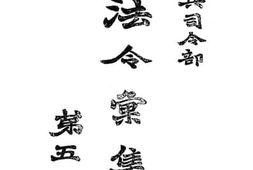 兵司令部
法令彙集
第五